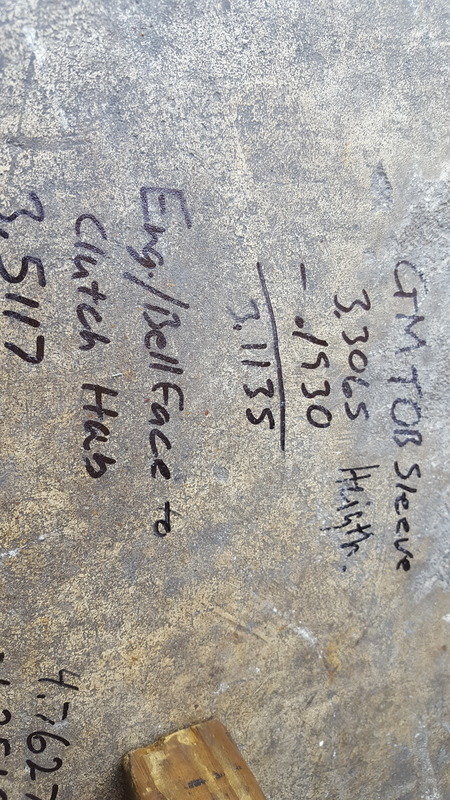 GM TOB Sleeve
3.3065 Heigth.
- .1930
3.1135
Eng./Bell Face to
Clutch Hub
3.5117
4.7627